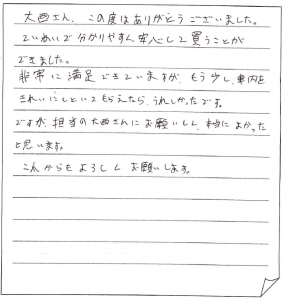 大西さん、この度はありがとうございました。
ていねいで分かりやすく安心して買うことが
できました。
非常に満足できていますが、もう少し、車内を
きれいにしといてもらえたら、うれしかったです。
ですが、担当の大西さんにお願いし、本当によかった
と思います。
これからもよろしくお願いします。